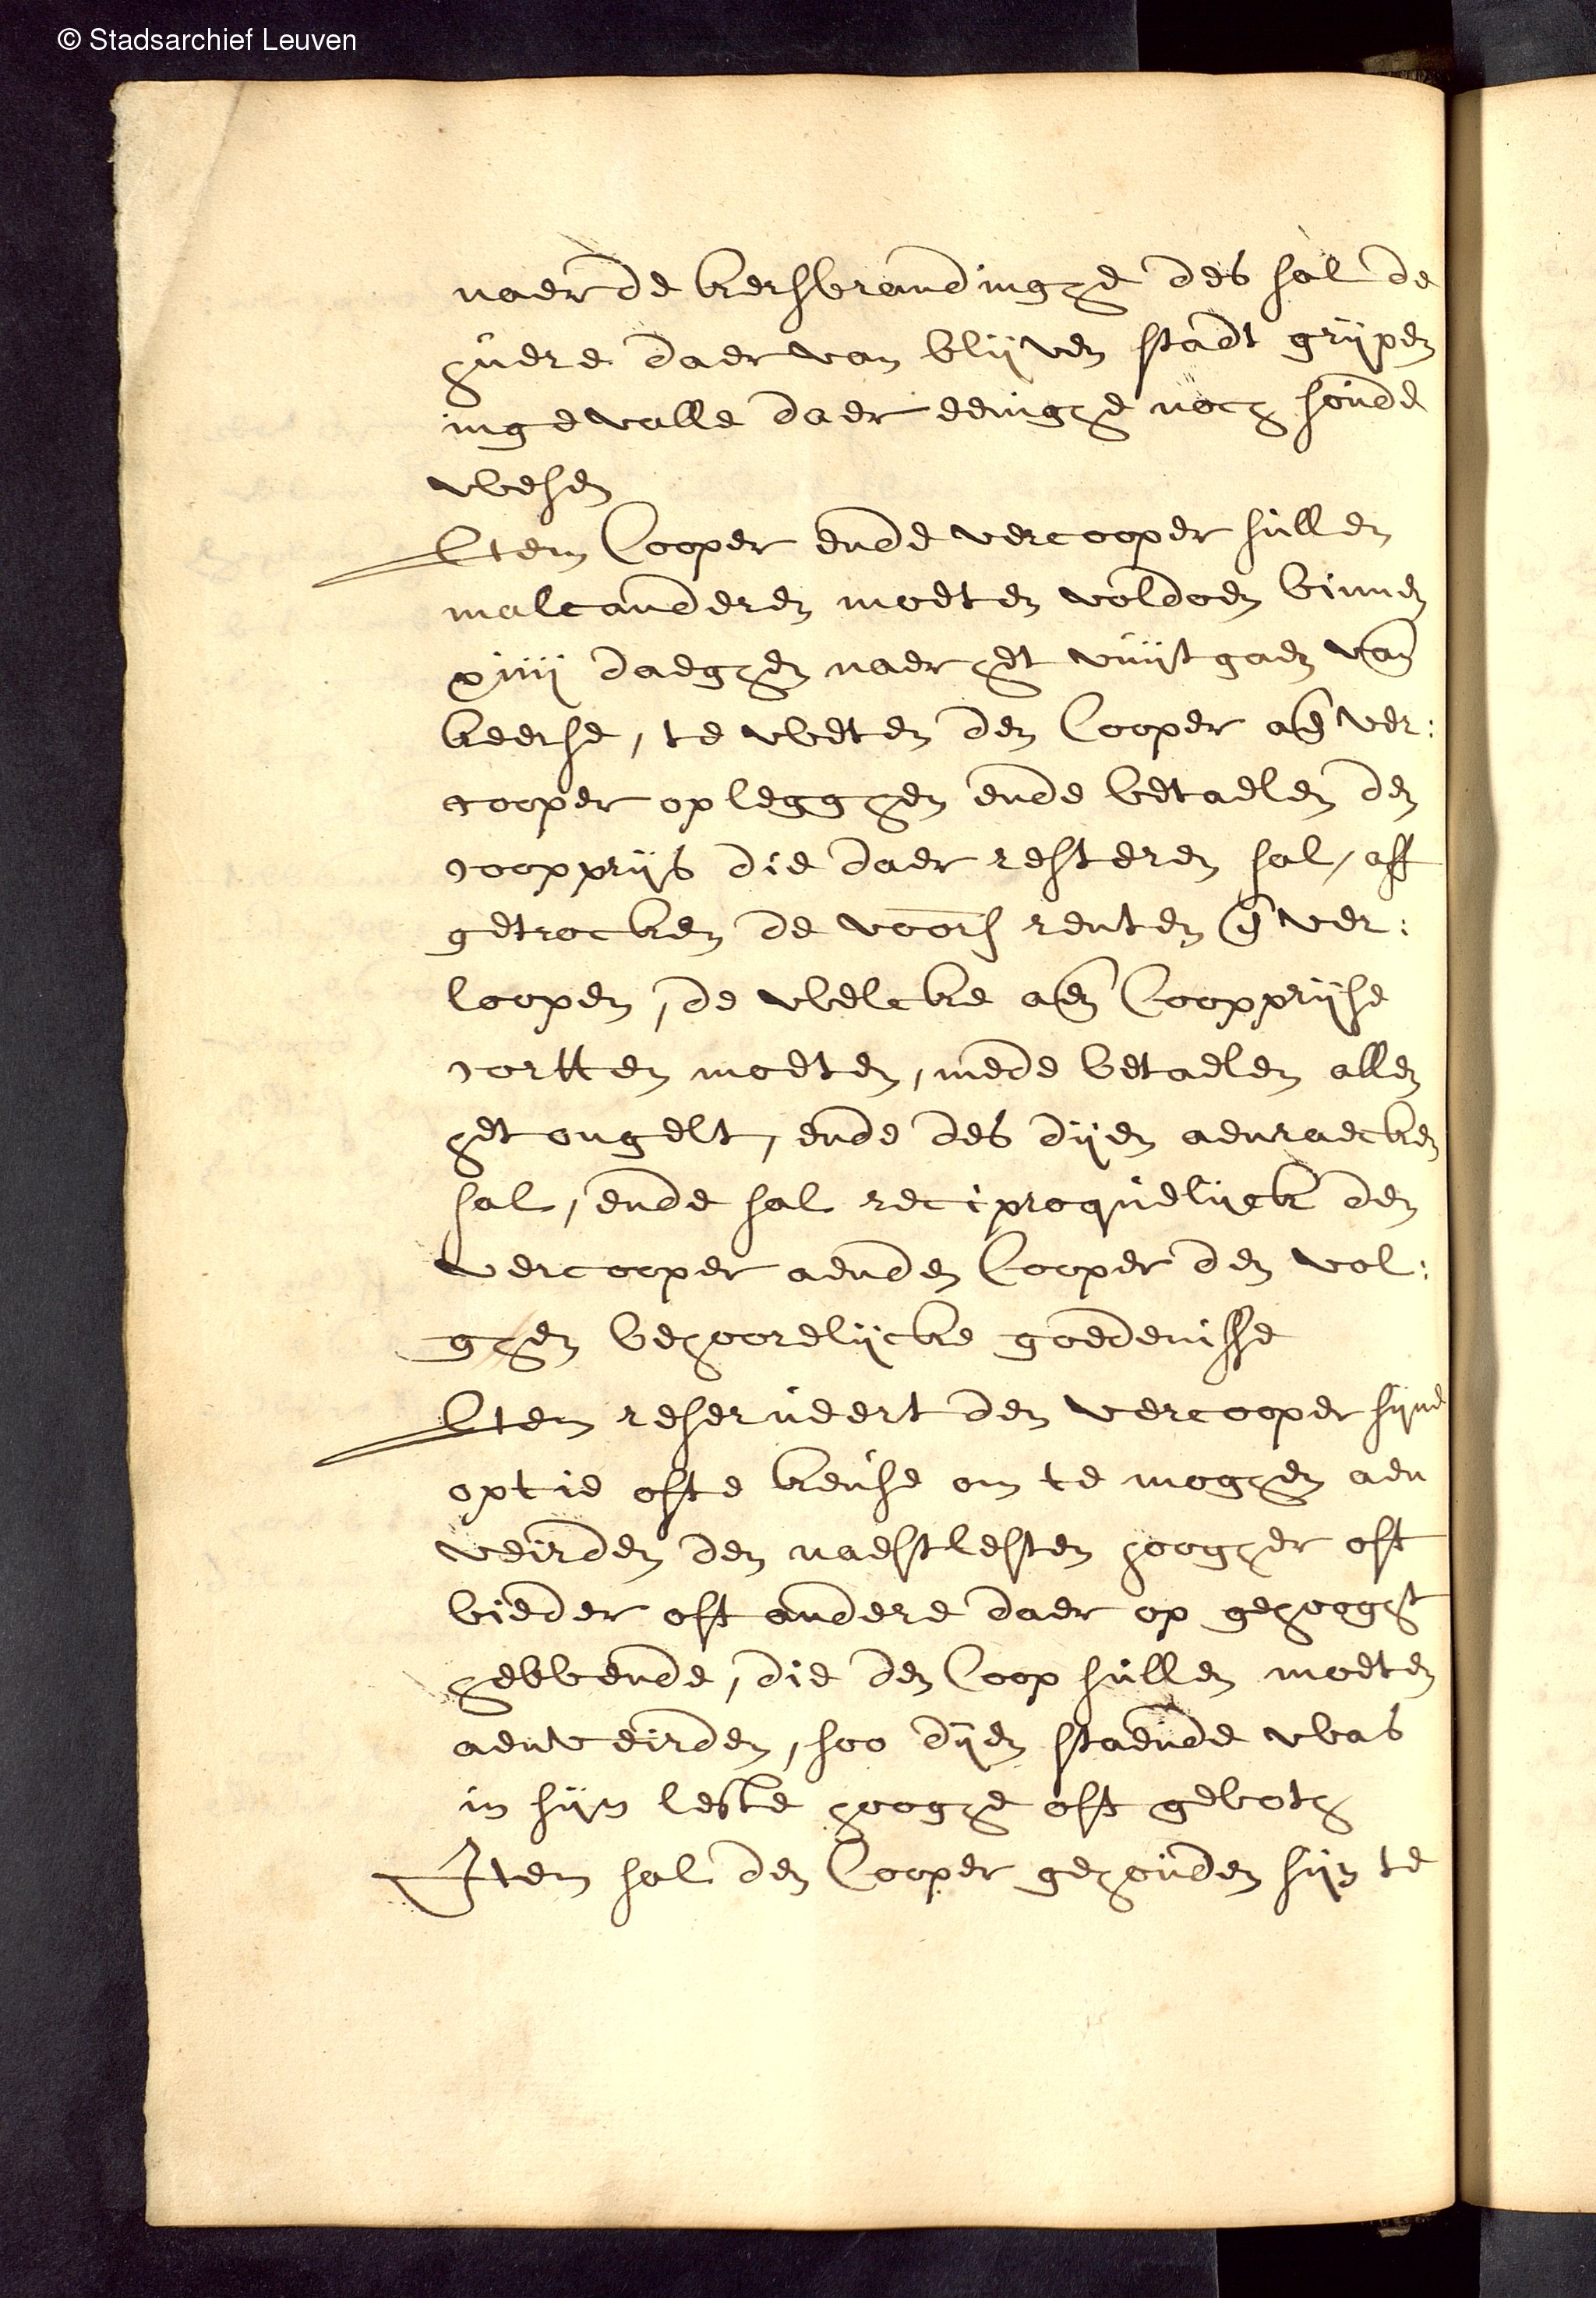 © Stadsarchief Leuven
naer de kersbrandinghe des sal de
huere daer van blijven stadt grijpen
ingevalle daer eenighe noch soude
wesen
Item Cooper ende vercooper sullen
malcanderen moeten voldoen binnen
xiiij daeghen naer het vuijtgaen van
keerse, te weten den Cooper aen ver:
cooper opleggen ende betaelen den
coopprijs die daer resteren sal, aff
getrocken de voors renten en ver:
loopen, de welcke aen Coopprijse
cortten moeten, mede betaelen allen
het ongelt, ende des dijen aenraecken
sal, ende sal reciproquelijck den
vercooper aenden Cooper den vol:
ghen behoorelijcke goedenisse
Item reserveert den vercooper sijne
optie ofte keuse om te moghen aen
veirden den naestlesten hoogher oft
bieder oft andere daer op gehooght
hebbende, die den Coop sullen moeten
aenveirden, soo dijen staende was
in sijn leste hooghe oft geboth
Item sal den Cooper gehouden sijn te